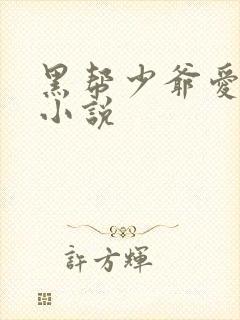 黑帮少爷愛
小説
許方輝